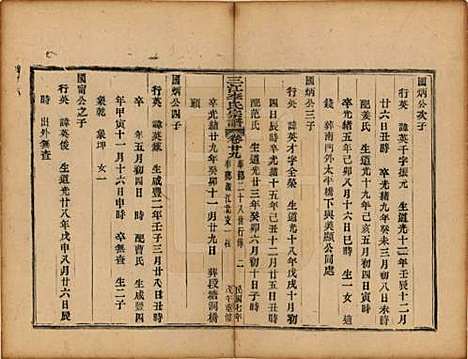 國炳公次子
行英 諱英千字振元 生道光十二年壬辰十二月
廿六日丑時 卒光緒九年癸未三月初八日亥時
配姜氏 生道光十九年己亥五月初四日寅時
卒光緒五年己卯八月初八日巳時 生一女 適
錢 葬南門外太平橋下與美顯公同處
國炳公三子
行英 諱英才字全榮 生道光十八年戊戌十月
卒光緒十五年己丑十二月廿五日丑時
配范氏 生道光廿三年癸卯六月初十日子時
卒光緒廿九年癸卯十一月廿九日 葬段塘洞橋
三江李氏宗譜 卷廿九
二十八世行傳 二
鎮江北支一柱
民國七年
戊午重修
國炳公四子
行英 諱英 生咸豐二年壬子三月廿八日丑時
卒 年五月初四日時 配曹氏 生咸豐四
年甲寅十一月十六日申時 卒無查 生二子
象乾 象坤 女一
國甯公之子
行英 諱英俊 生道光廿八年戊申八月廿六日辰
時 出外無查